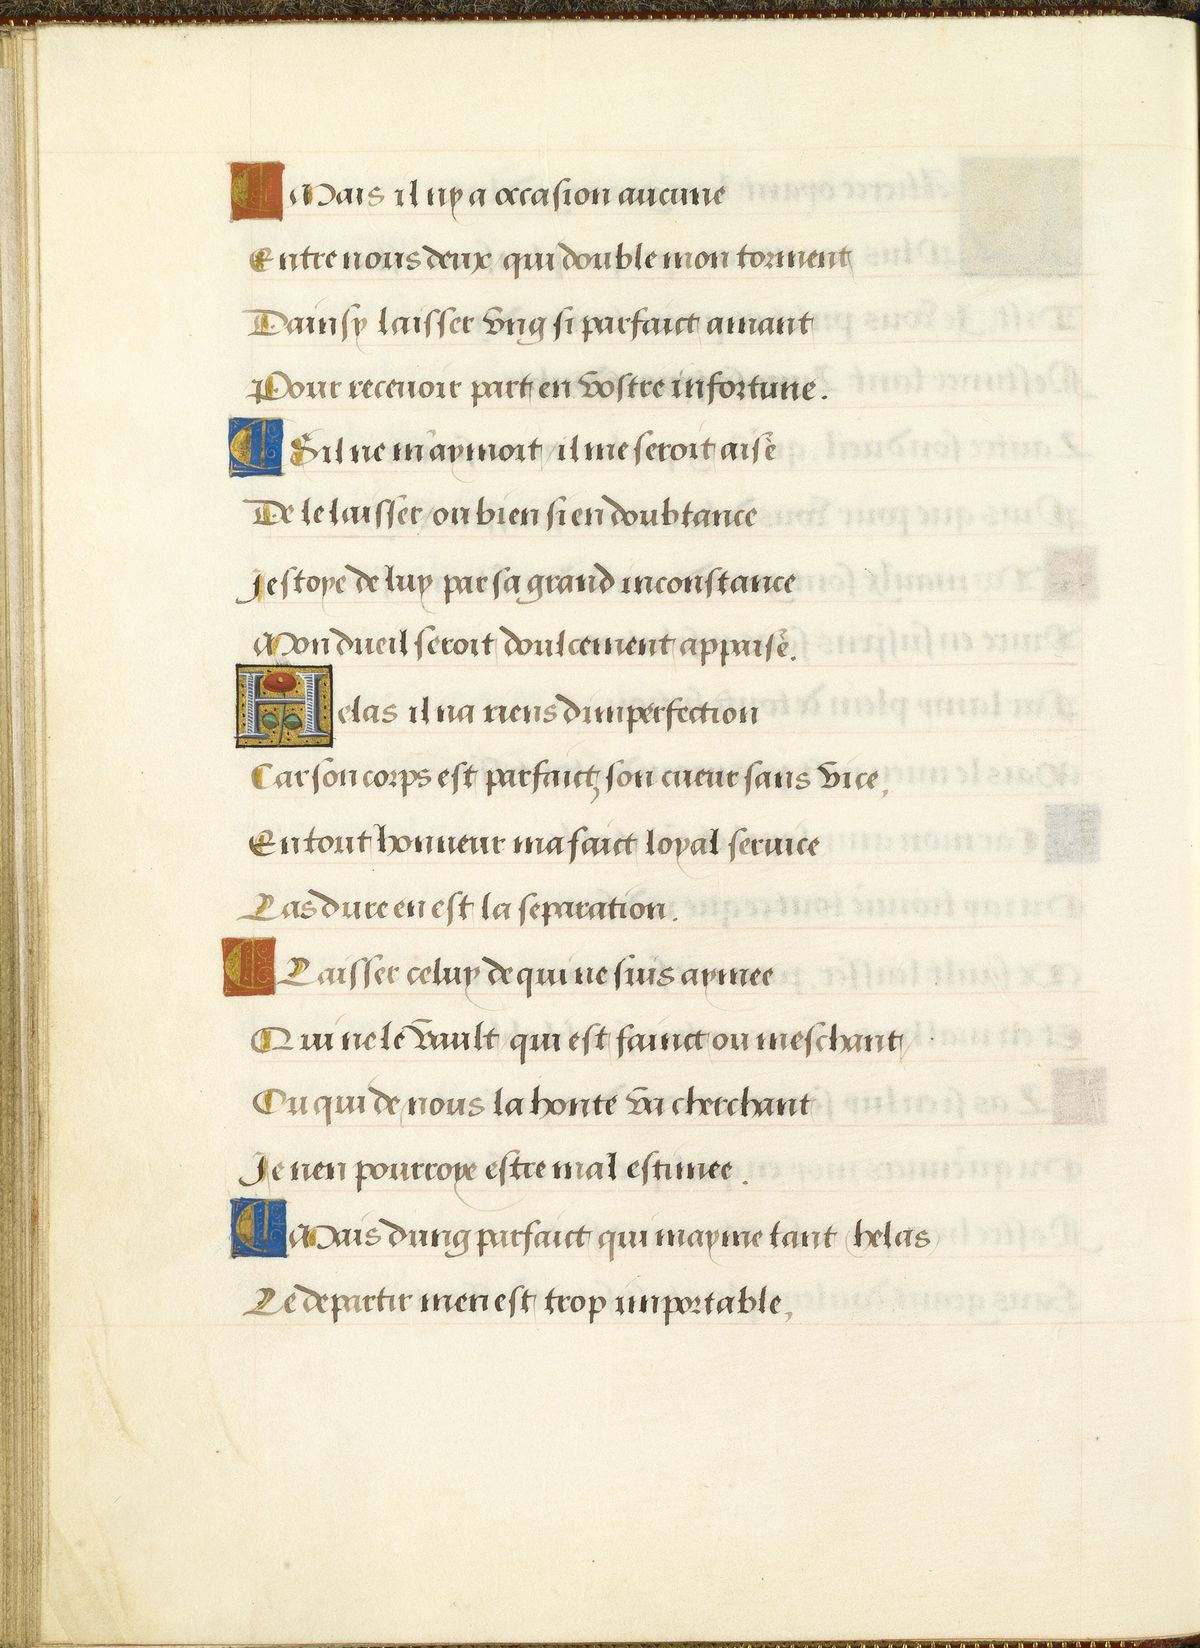 Mais il ny a occasion aucune
Entre nous deux qui double mon torment
Dainsy laisser vng si parfaict amant
Pour receuoir part en vostre infortune.
Sil ne m'aymoit il me seroit aisé
De le laisser ou bien si en doubtance
Jestoye de luy par sa grand inconstance
Mon dueil seroit doulcement appaisé.
Helas il na riens dimperfection
Car son corps est parfaict, son cueur sans vice,
En tout honneur ma faict loyal seruice
Las dure en est la separation.
Laisser celuy de qui ne suis aymee
Qui ne le vault qui est fainct ou meschant
Ou qui de nous la honte va cherchant
Je nen pourroye estre mal estimee.
Mais dung parfaict qui mayme tant (helas)
Le departir men est trop importable,